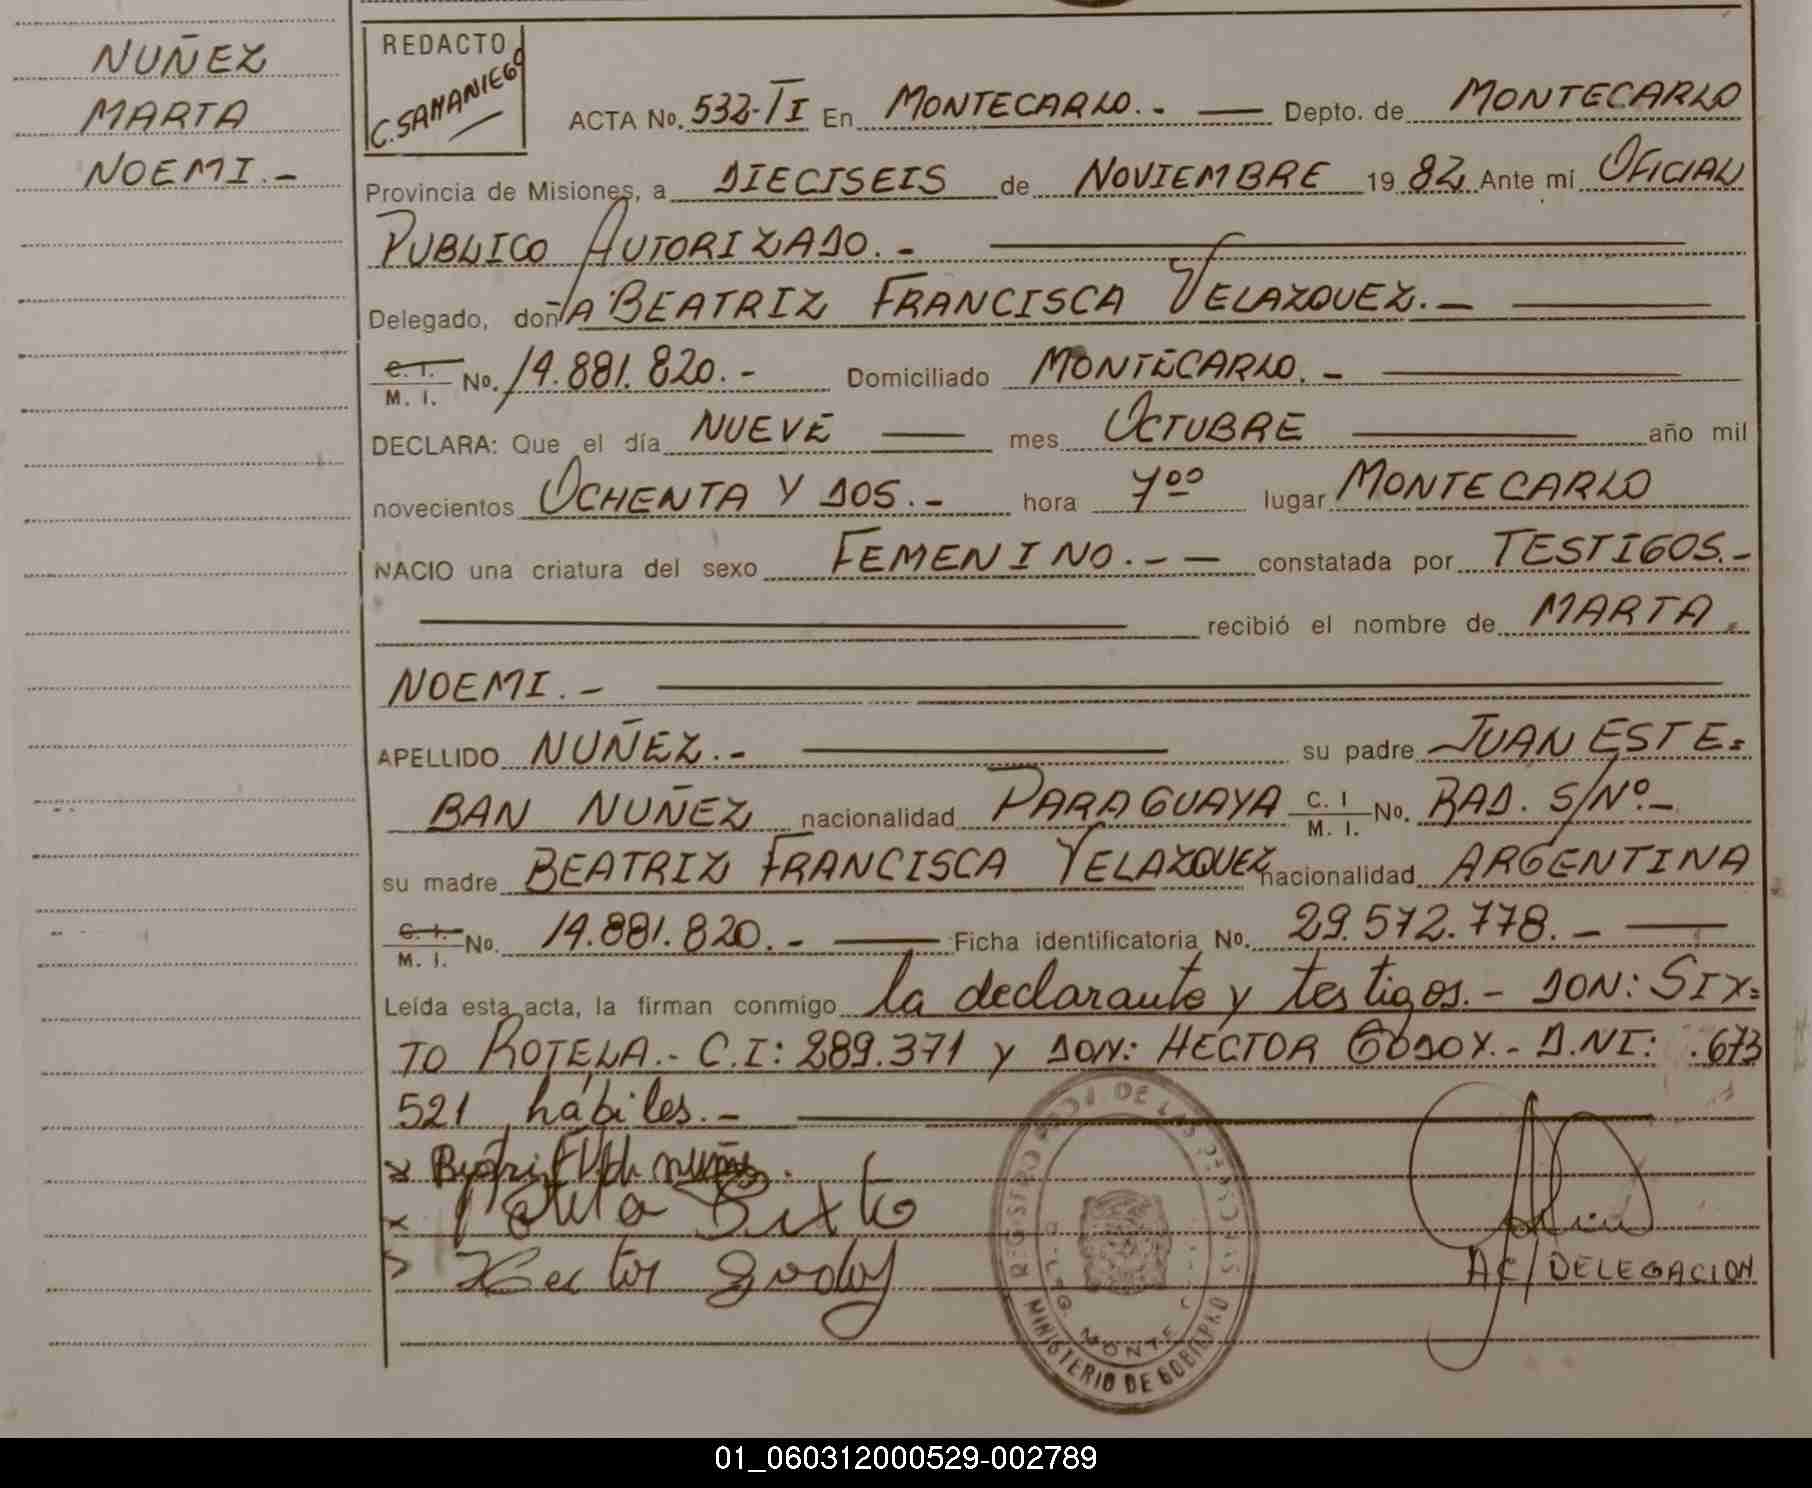 NUÑEZ
MARTA
NOEMI.-
REDACTO
C. SAMANIEGO
ACTA No. 532-TI En MONTECARLO.- Depto. de MONTECARLO
Provincia de Misiones, a DIECISEIS de NOVIEMBRE 1982 Ante mí OFICIAL
PUBLICO AUTORIZADO.-
Delegado, doñA BEATRIZ FRANCISCA VELAZQUEZ.-
C. I. M. I. No. 14.881.820.- Domiciliado MONTECARLO.-
DECLARA: Que el día NUEVE mes OCTUBRE año mil
novecientos OCHENTA Y DOS.- hora 7ºº lugar MONTECARLO
NACIO una criatura del sexo FEMENINO.- constatada por TESTIGOS.-
recibió el nombre de MARTA
NOEMI.-
APELLIDO NUÑEZ.- su padre JUAN ESTE=
BAN NUÑEZ nacionalidad PARAGUAYA C. I M. I. No. RAD. S/Nº.-
su madre BEATRIZ FRANCISCA VELAZQUEZ nacionalidad ARGENTINA
C. I. M. I. No. 14.881.820.- Ficha identificatoria No. 29.572.778.-
Leída esta acta, la firman conmigo la declarante y testigos.- DON: SIX=
TO ROTELA.- C.I: 289.371 y DON: HECTOR GODOY.- D.NI: .673
521 hábiles.-
Rotela Sixto
Hector Godoy
AC/DELEGACION
REGISTRO DE LAS PERSONAS
DELEG. MONTE
MINISTERIO DE GOBIERNO
01_060312000529-002789